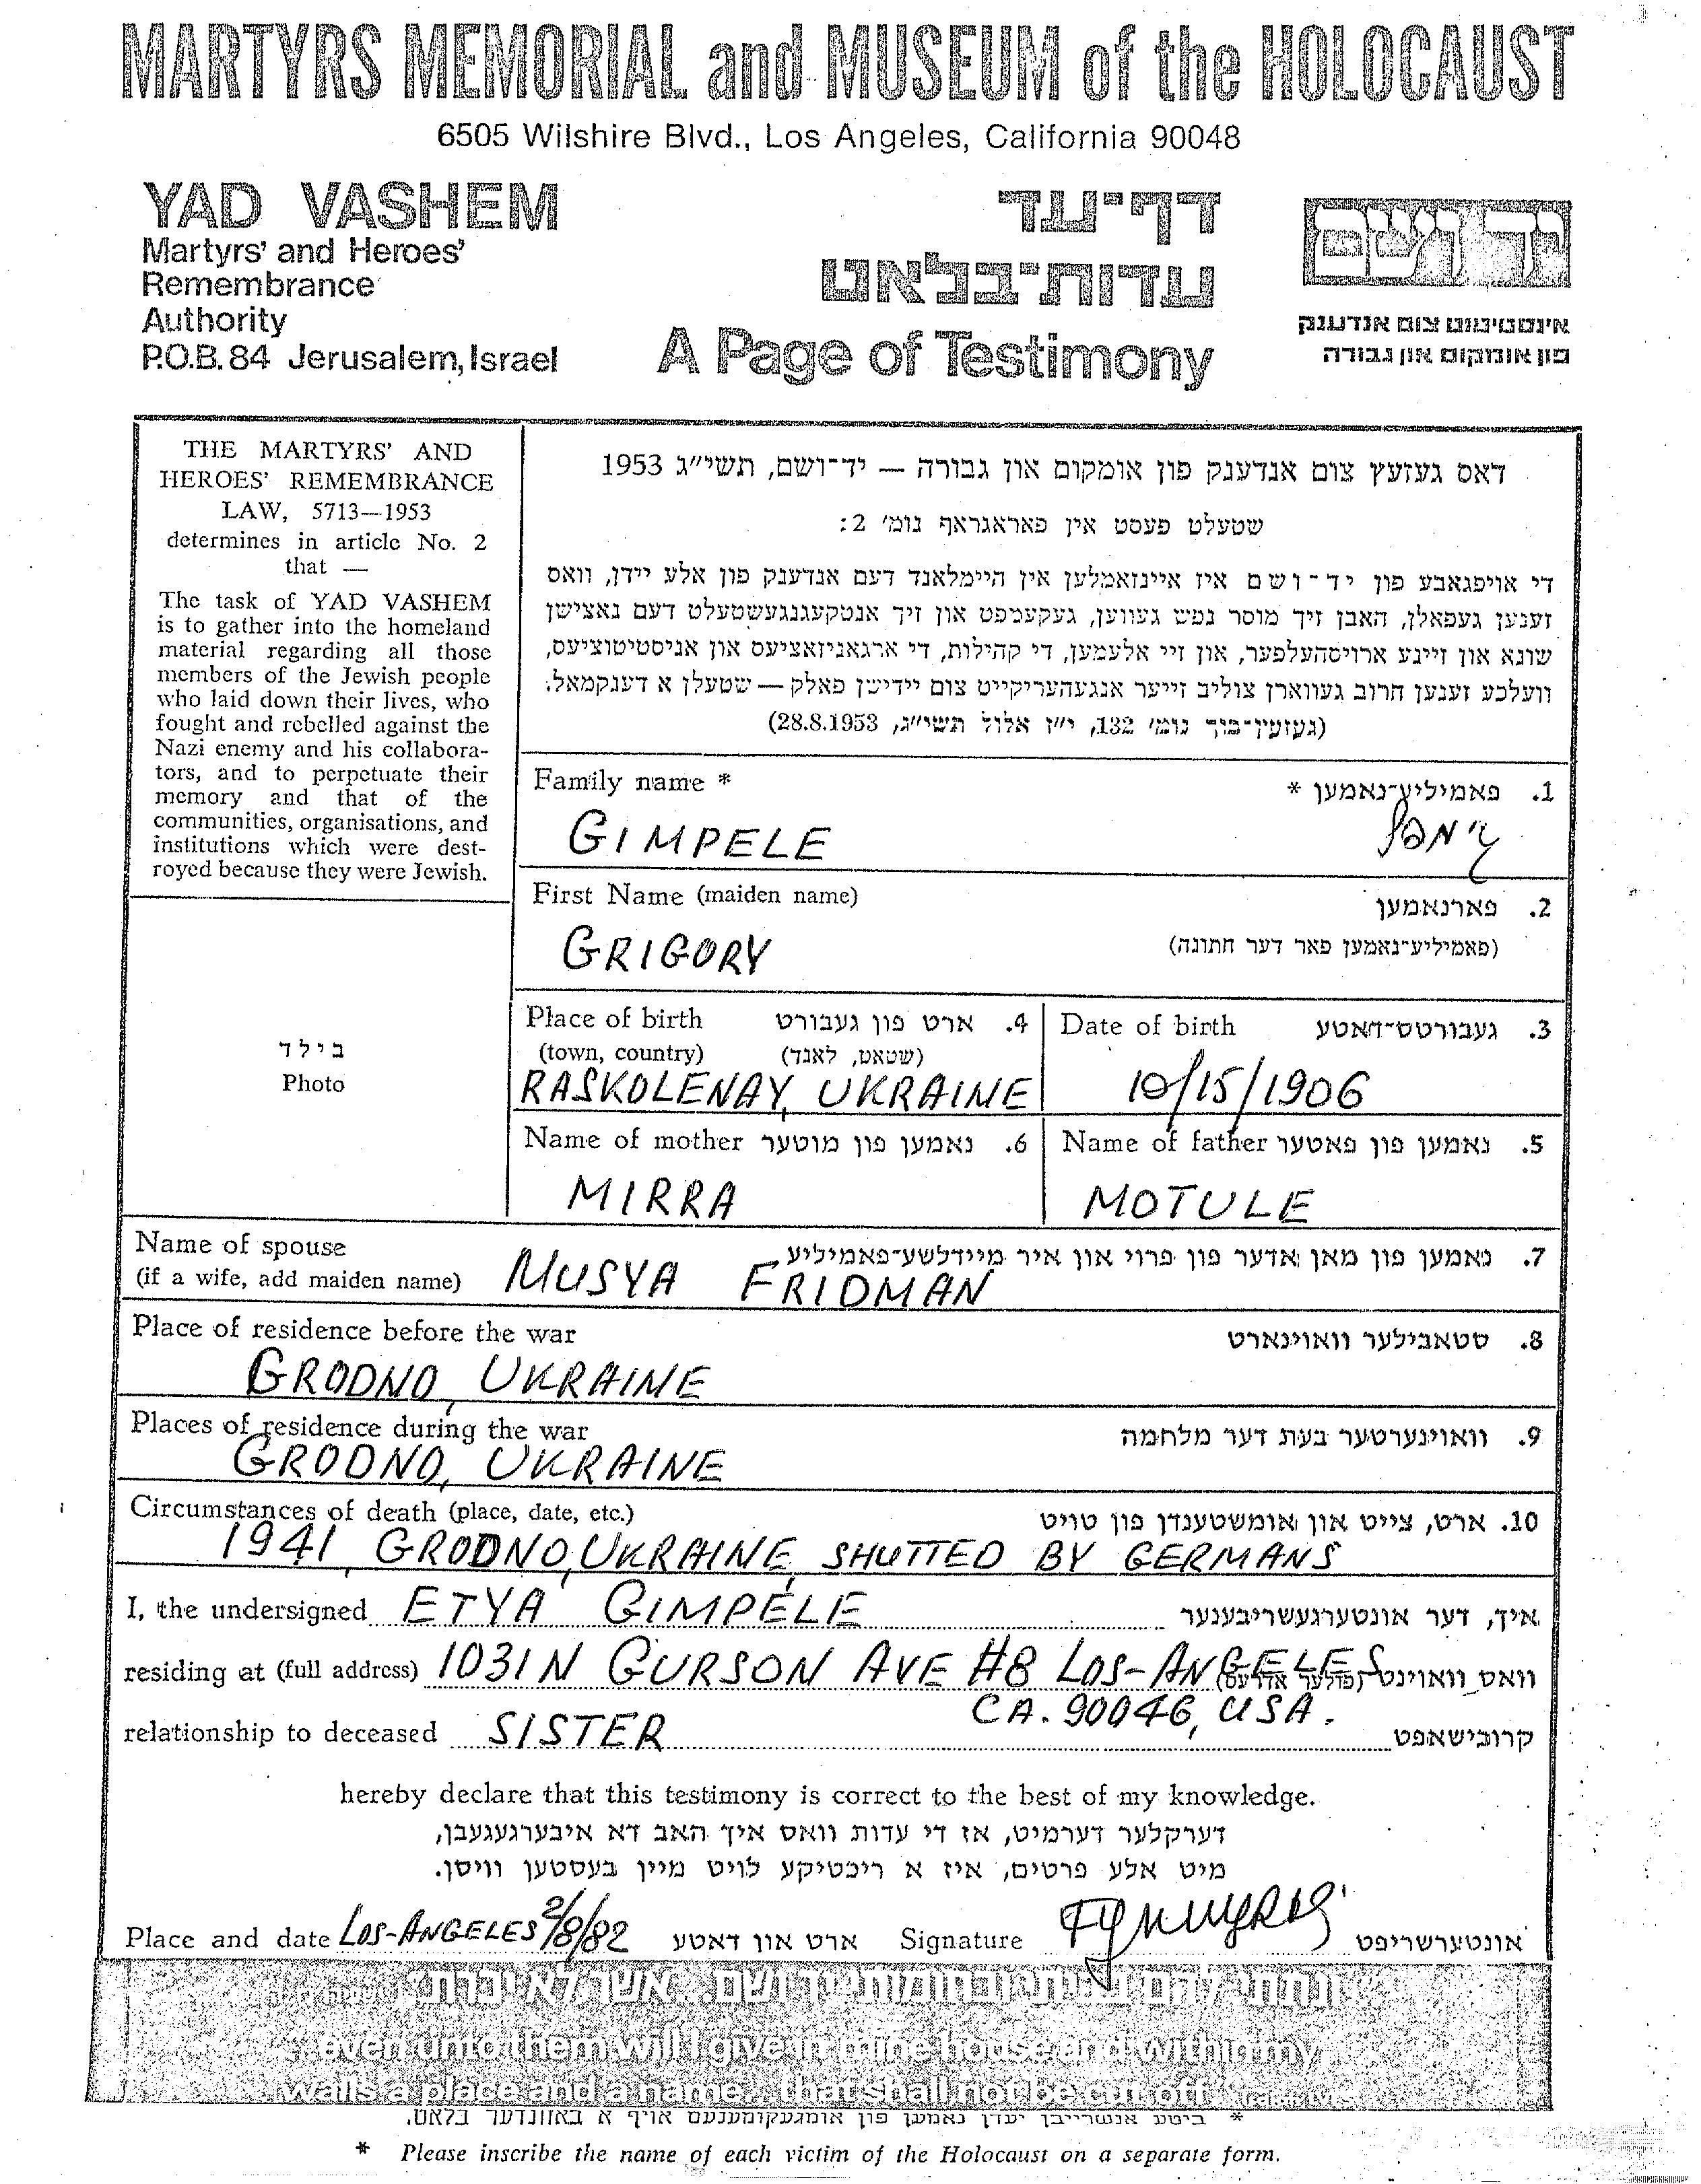 MARTYRS MEMORIAL and MUSEUM of the HOLOCAUST
6505 Wilshire Blvd., Los Angeles, California 90048
YAD VASHEM
Martyrs' and Heroes'
Remembrance
Authority
P.O.B. 84 Jerusalem, Israel
דף־עד
עדות־בלאט
A Page of Testimony
יד ושם
אינסטיטוט צום אנדענק
פון אומקום און גבורה
THE MARTYRS' AND
HEROES' REMEMBRANCE
LAW, 5713—1953
determines in article No. 2
that —
The task of YAD VASHEM
is to gather into the homeland
material regarding all those
members of the Jewish people
who laid down their lives, who
fought and rebelled against the
Nazi enemy and his collabora-
tors, and to perpetuate their
memory and that of the
communities, organisations, and
institutions which were dest-
royed because they were Jewish.
דאס געזעץ צום אנדענק פון אומקום און גבורה — יד־ושם, תשי"ג 1953
שטעלט פעסט אין פאראגראף נומ' 2:
די אויפגאבע פון יד־ושם איז איינזאמלען אין היימלאנד דעם אנדענק פון אלע יידן, וואס
זענען געפאלן, האבן זיך מוסר נפש געווען, געקעמפט און זיך אנטקעגנגעשטעלט דעם נאצישן
שונא און זיינע ארויסהעלפער, און זיי אלעמען, די קהילות, די ארגאניזאציעס און אניסטיטוציעס,
וועלכע זענען חרוב געווארן צוליב זייער אנגעהעריקייט צום יידישן פאלק — שטעלן א דענקמאל.
(געזעץ־בוך נומ' 132, י"ז אלול תשי"ג, 28.8.1953)
Family name *
1. פאמיליע־נאמען *
GIMPELE
גימפל
First Name (maiden name)
2. פארנאמען
(פאמיליע־נאמען פאר דער חתונה)
GRIGORY
בילד
Photo
Place of birth
4. ארט פון געבורט
(town, country)
(שטאט, לאנד)
RASKOLENAY, UKRAINE
Date of birth
3. געבורטס־דאטע
10/15/1906
Name of mother 6. נאמען פון מוטער
MIRRA
Name of father 5. נאמען פון פאטער
MOTULE
Name of spouse
(if a wife, add maiden name)
7. נאמען פון מאן אדער פון פרוי און איר מיידלשע־פאמיליע
MUSYA FRIDMAN
Place of residence before the war
8. סטאבילער וואוינארט
GRODNO, UKRAINE
Places of residence during the war
9. וואוינערטער בעת דער מלחמה
GRODNO, UKRAINE
Circumstances of death (place, date, etc.)
10. ארט, צייט און אומשטענדן פון טויט
1941, GRODNO, UKRAINE, SHUTTED BY GERMANS
I, the undersigned ETYA GIMPELE איך, דער אונטערגעשריבענער
residing at (full address) 1031 N GURSON AVE #8 LOS-ANGELES וואס וואוינט (פולער אדרעס)
CA. 90046, USA.
relationship to deceased SISTER קרובישאפט
hereby declare that this testimony is correct to the best of my knowledge.
דערקלער דערמיט, אז די עדות וואס איך האב דא איבערגעגעבן,
מיט אלע פרטים, איז א ריכטיקע לויט מיין בעסטען וויסן.
Place and date LOS-ANGELES 2/8/82 ארט און דאטע Signature אונטערשריפט
ונתתי להם בביתי ובחומותי יד ושם... אשר לא יכרת
...even unto them will I give in mine house and within my
walls a place and a name... that shall not be cut off
* ביטע אנשרייבן יעדן נאמען פון אומגעקומענעם אויף א באזונדער בלאט.
* Please inscribe the name of each victim of the Holocaust on a separate form.